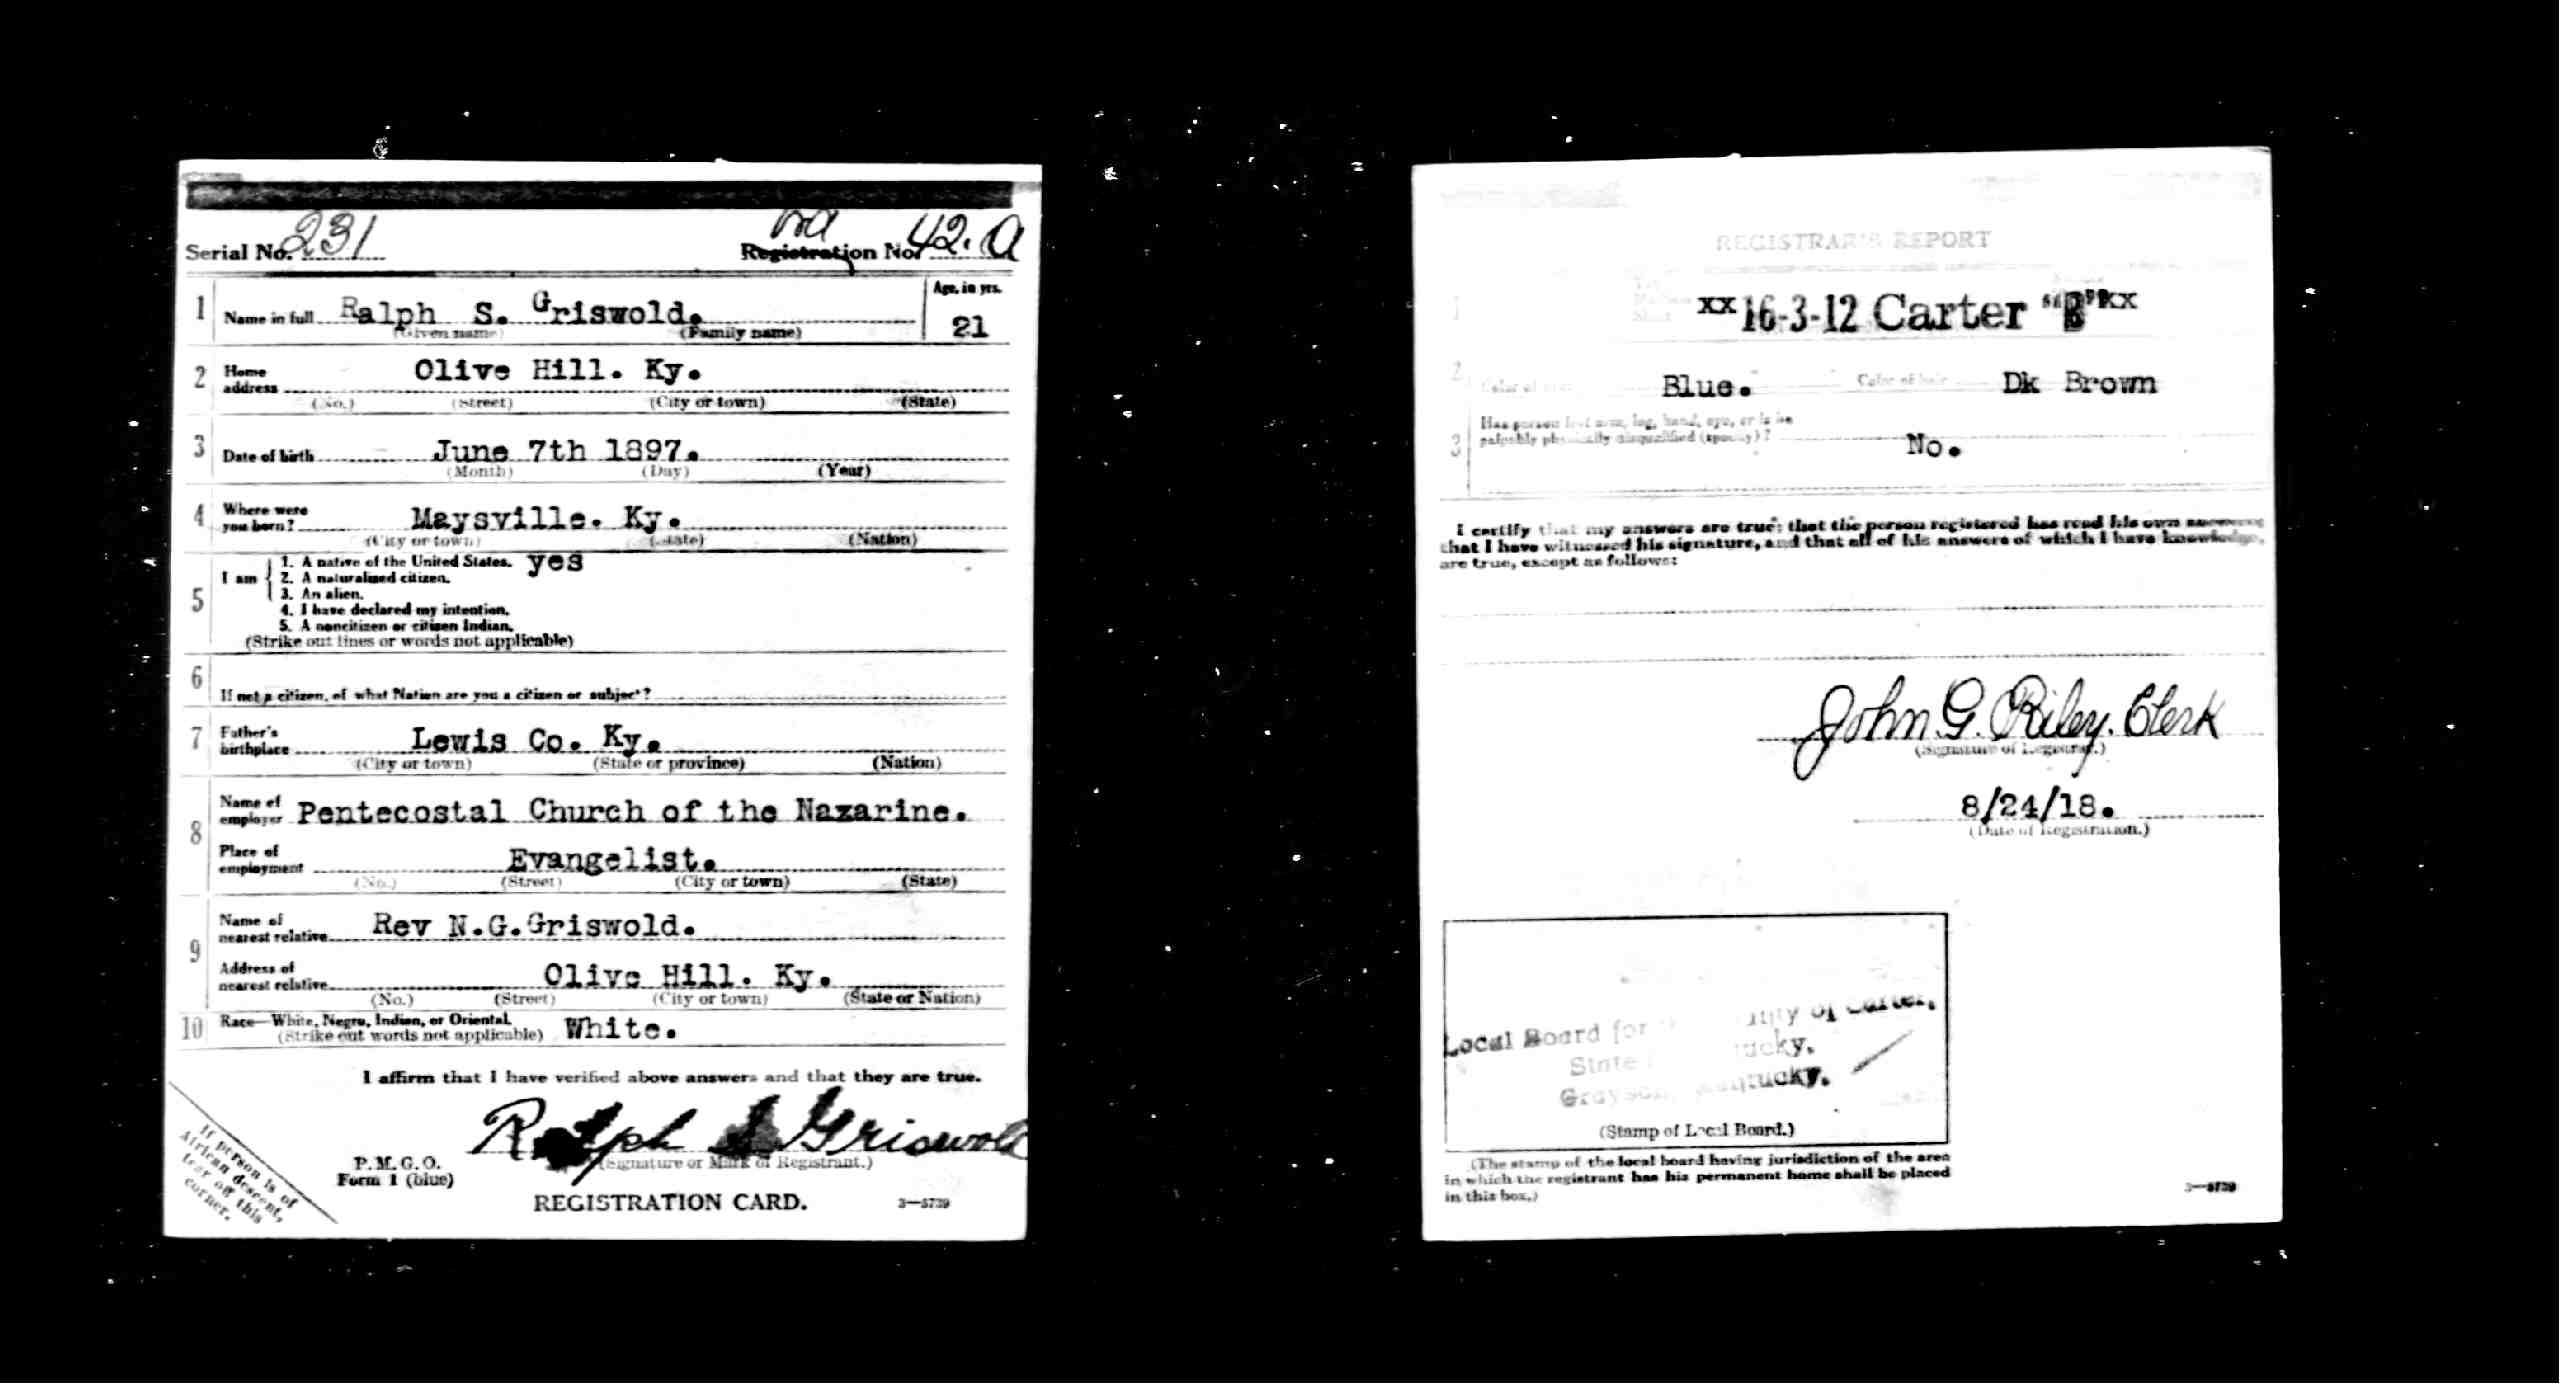 Serial No. 231 Registration No. 42. A
1 Name in full Ralph S. Griswold. Age, in yrs.
(Given name) (Family name) 21
2 Home address Olive Hill. Ky.
(No.) (Street) (City or town) (State)
3 Date of birth June 7th 1897.
(Month) (Day) (Year)
4 Where were you born? Maysville. Ky.
(City or town) (State) (Nation)
5 I am
1. A native of the United States. yes
2. A naturalized citizen.
3. An alien.
4. I have declared my intention.
5. A noncitizen or citizen Indian.
(Strike out lines or words not applicable)
6 If not a citizen, of what Nation are you a citizen or subject?
7 Father's birthplace Lewis Co. Ky.
(City or town) (State or province) (Nation)
8 Name of employer Pentecostal Church of the Nazarine.
Place of employment Evangelist.
(No.) (Street) (City or town) (State)
9 Name of nearest relative Rev N.G.Griswold.
Address of nearest relative Olive Hill. Ky.
(No.) (Street) (City or town) (State or Nation)
10 Race—White, Negro, Indian, or Oriental.
(Strike out words not applicable) White.
I affirm that I have verified above answers and that they are true.
Ralph S Griswold
(Signature or Mark of Registrant.)
P. M. G. O.
Form 1 (blue)
REGISTRATION CARD. 3—5739
If person is of
African descent,
tear off this
corner.
REGISTRAR'S REPORT
1 xx 16-3-12 Carter " " xx
2 Color of eyes Blue. Color of hair Dk Brown
3 Has person lost arm, leg, hand, eye, or is he
palpably physically disqualified (specify)? No.
I certify that my answers are true; that the person registered has read his own answers
that I have witnessed his signature, and that all of his answers of which I have knowledge,
are true, except as follows:
John G. Riley. Clerk
(Signature of Registrar.)
8/24/18.
(Date of Registration.)
Local Board for County of Carter,
State Kentucky.
Grayson, Kentucky.
(Stamp of Local Board.)
(The stamp of the local board having jurisdiction of the area
in which the registrant has his permanent home shall be placed
in this box.)
3—5739